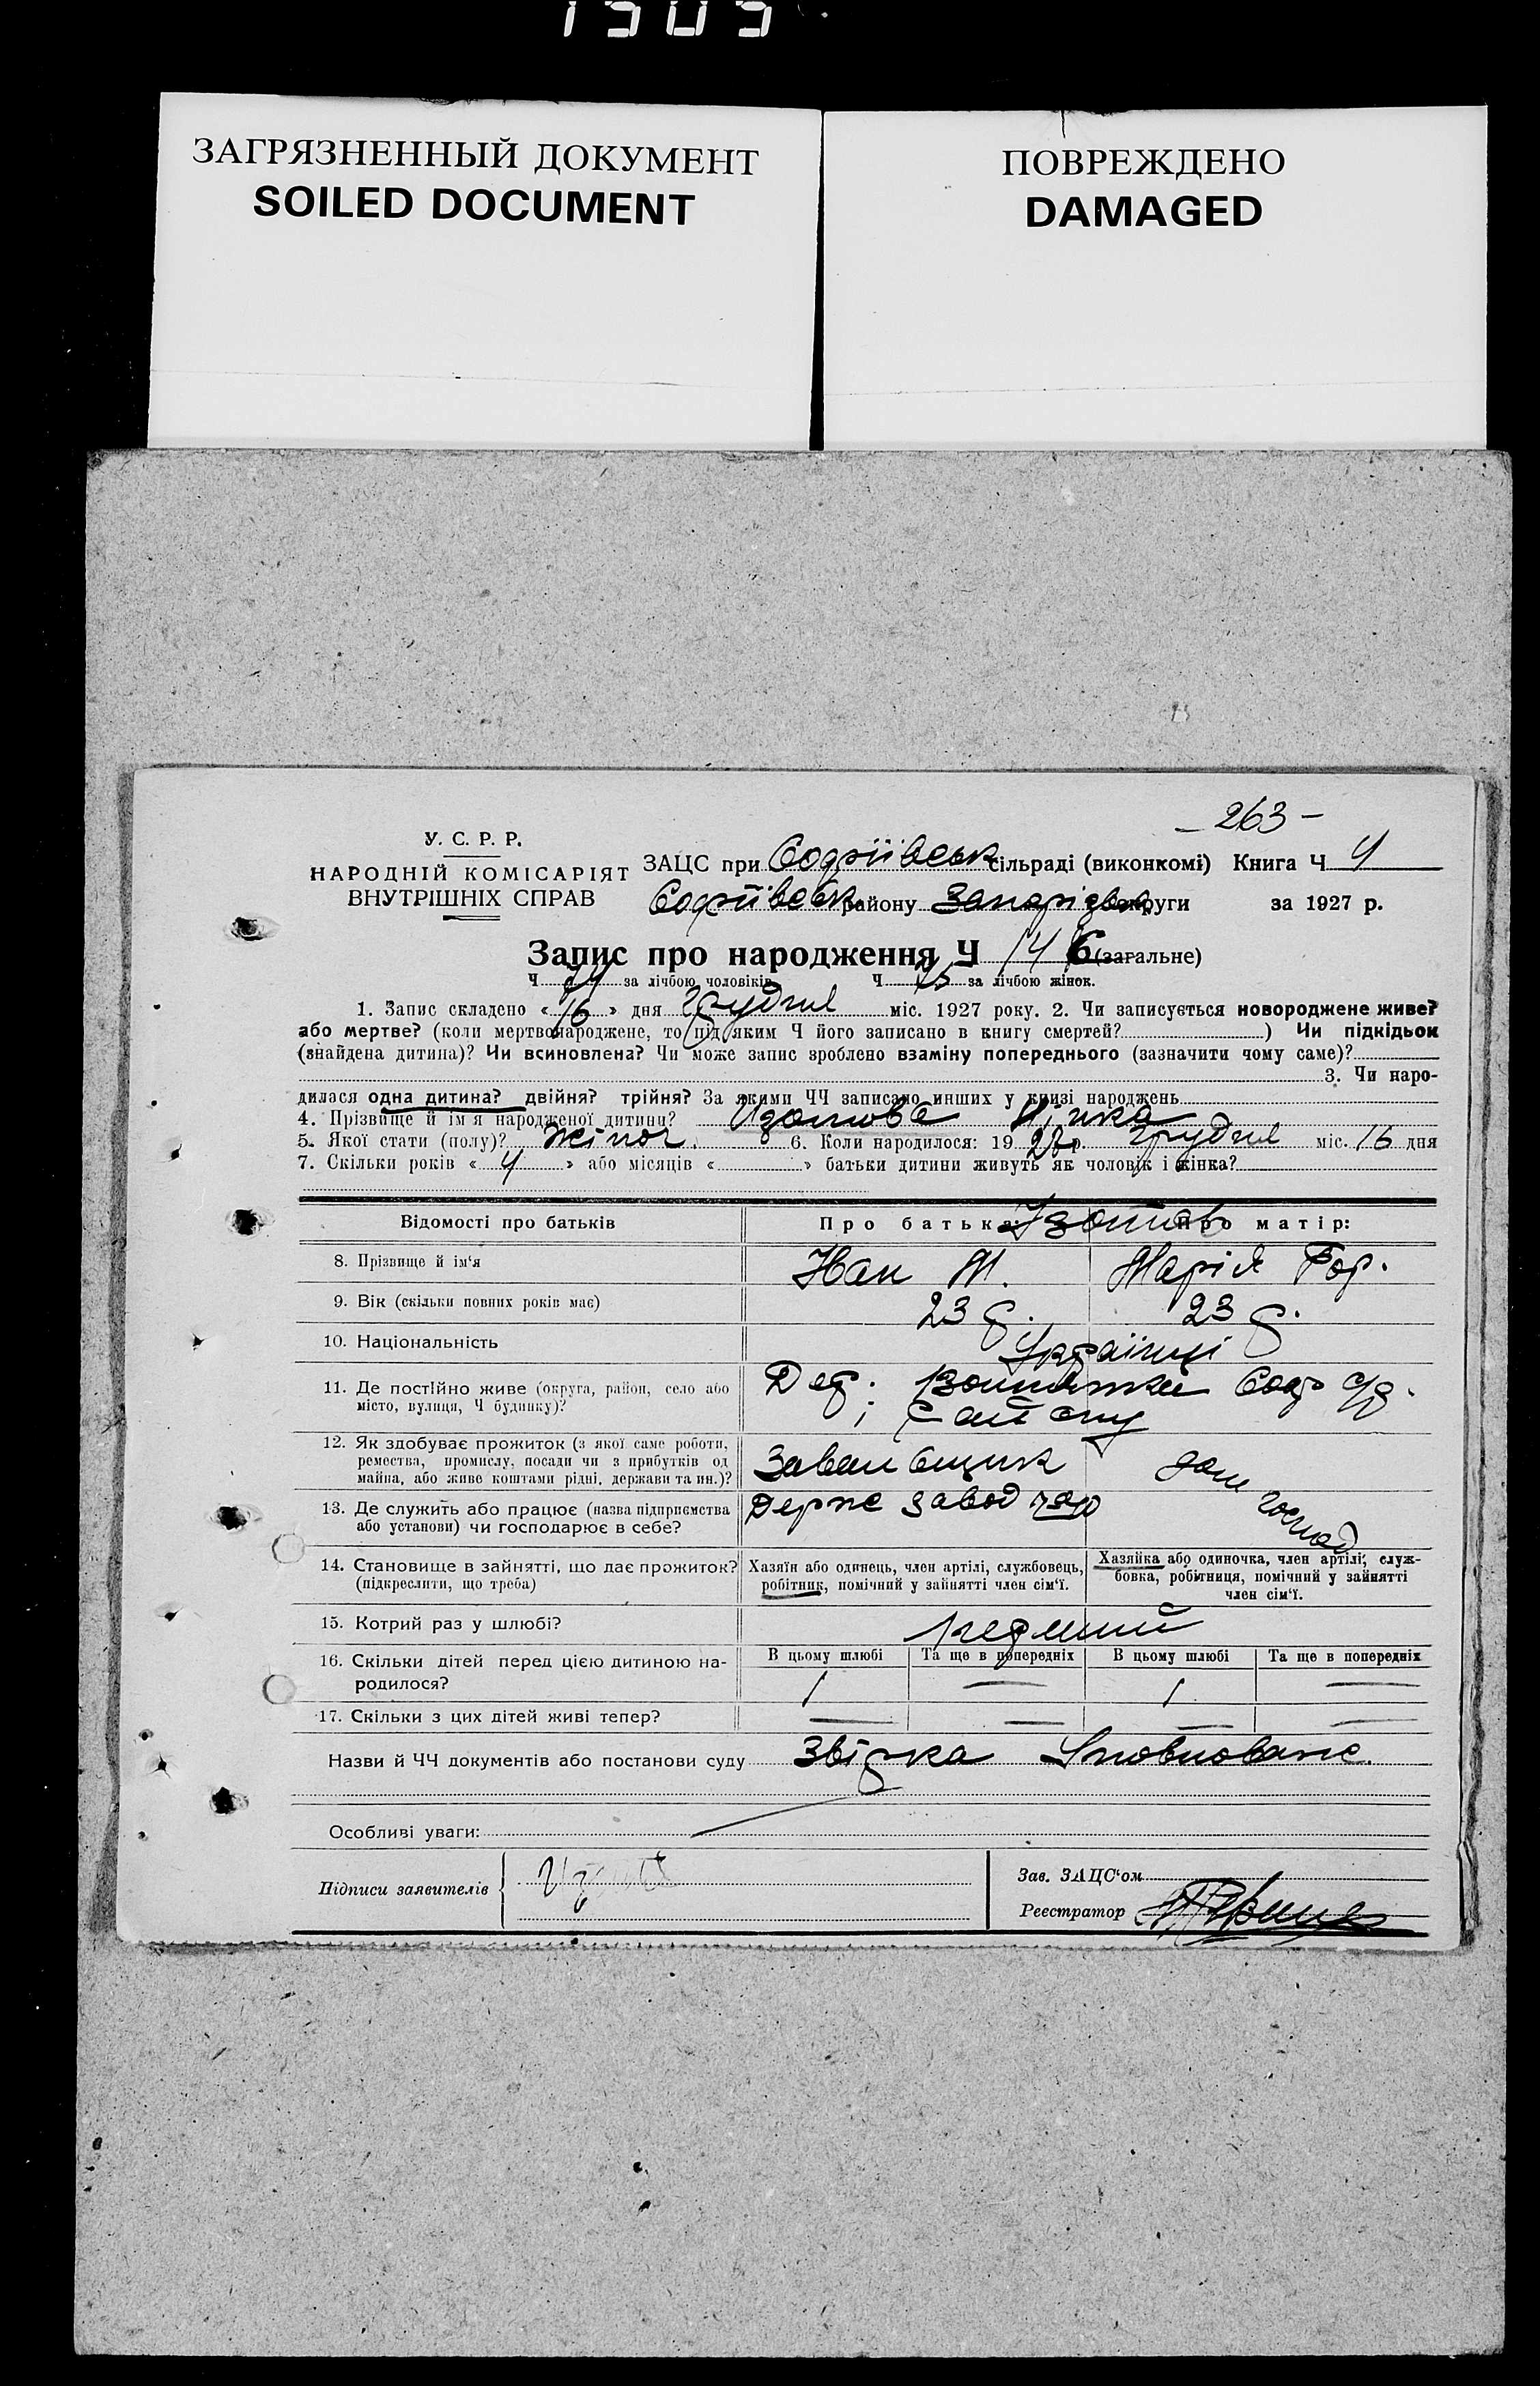 ЗАГРЯЗНЕННЫЙ ДОКУМЕНТ
SOILED DOCUMENT
ПОВРЕЖДЕНО
DAMAGED
- 263 -
У. С. Р. Р.
НАРОДНІЙ КОМІСАРІЯТ
ВНУТРІШНІХ СПРАВ
ЗАЦС при Софіївськ сільраді (виконкомі) Книга Ч 4
Софіївськ району Запорізької округи за 1927 р.
Запис про народження Ч 146 (загальне)
Ч за лічбою чоловіків Ч за лічбою жінок.
1. Запис складено « 16 » дня грудня міс. 1927 року. 2. Чи записується новороджене живе?
або мертве? (коли мертвонароджене, то під яким Ч його записано в книгу смертей? ) Чи підкідьок
(знайдена дитина)? Чи всиновлена? Чи може запис зроблено взаміну попереднього (зазначити чому саме)?
3. Чи наро-
дилася одна дитина? двійня? трійня? За якими ЧЧ записано инших у книзі народжень
4. Прізвище й ім'я народженої дитини? Изотова Нінка
5. Якої стати (полу)? жіноч. 6. Коли народилося: 19 р. грудня міс. 16 дня
7. Скільки років « 4 » або місяців « » батьки дитини живуть як чоловік і жінка?
Відомості про батьків Про батька: Про матір:
8. Прізвище й ім'я Іван М. Марія Гор.
9. Вік (скільки повних років має) 23 р. 23 р.
10. Національність Українці
11. Де постійно живе (округа, район, село або
місто, вулиця, Ч будинку)?
12. Як здобуває прожиток (з якої саме роботи,
ремества, промислу, посади чи з прибутків од
майна, або живе коштами рідні, держави та ин.)?
дом господ
13. Де служить або працює (назва підприємства
або установи) чи господарює в себе?
Держ завод
14. Становище в зайнятті, що дає прожиток?
(підкреслити, що треба)
Хазяїн або одинець, член артілі, службовець,
робітник, помічний у зайнятті член сім'ї.
Хазяйка або одиночка, член артілі, служ-
бовка, робітниця, помічний у зайнятті
член сім'ї.
15. Котрий раз у шлюбі?
16. Скільки дітей перед цією дитиною на-
родилося?
В цьому шлюбі Та ще в попередніх В цьому шлюбі Та ще в попередніх
1 — 1 —
17. Скільки з цих дітей живі тепер? — — — —
Назви й ЧЧ документів або постанови суду Звірка
Особливі уваги:
Підписи заявителів
Зав. ЗАЦС'ом
Реєстратор